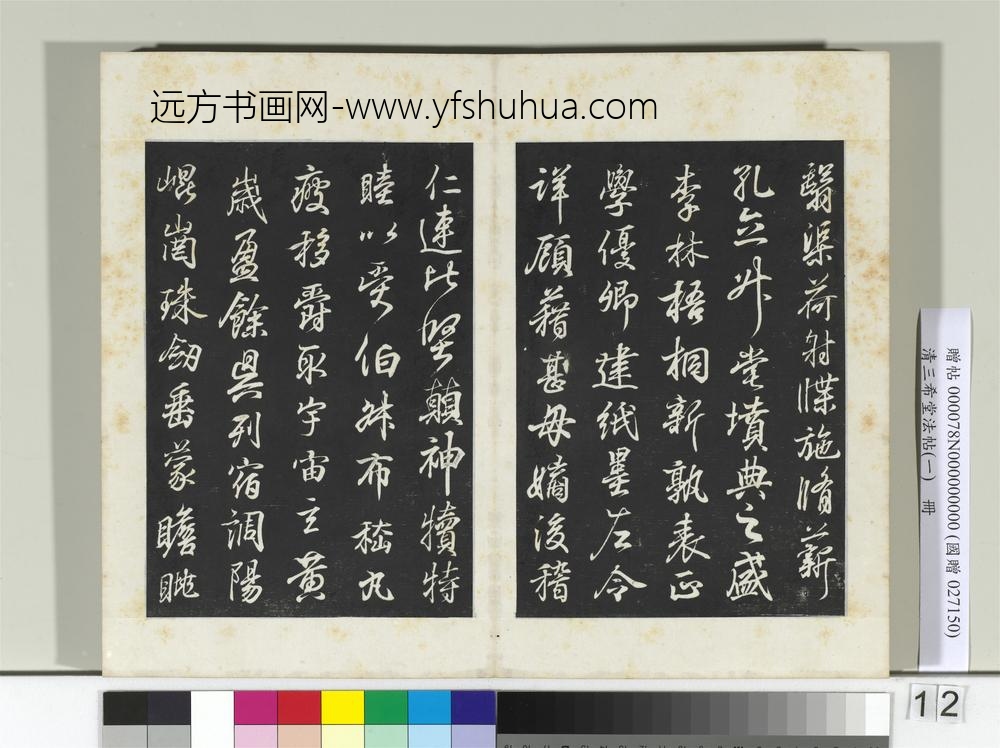 远方书画网-www.yfshuhua.com
翳渠荷射牒施脩薪
孔立升堂墳典之盛
李林梧桐新孰表正
學優卿建紙墨左令
詳顧藉甚毋嫡後稽
仁連比堅顛神犢特
睦以受伯叔布嵇丸
疲移爵取宇宙玄黃
歲盈餘具列宿調陽
崐崗珠劒垂蒙瞻眺
贈帖 000078N000000000 (國贈 027150)
清三希堂法帖(一) 冊
12